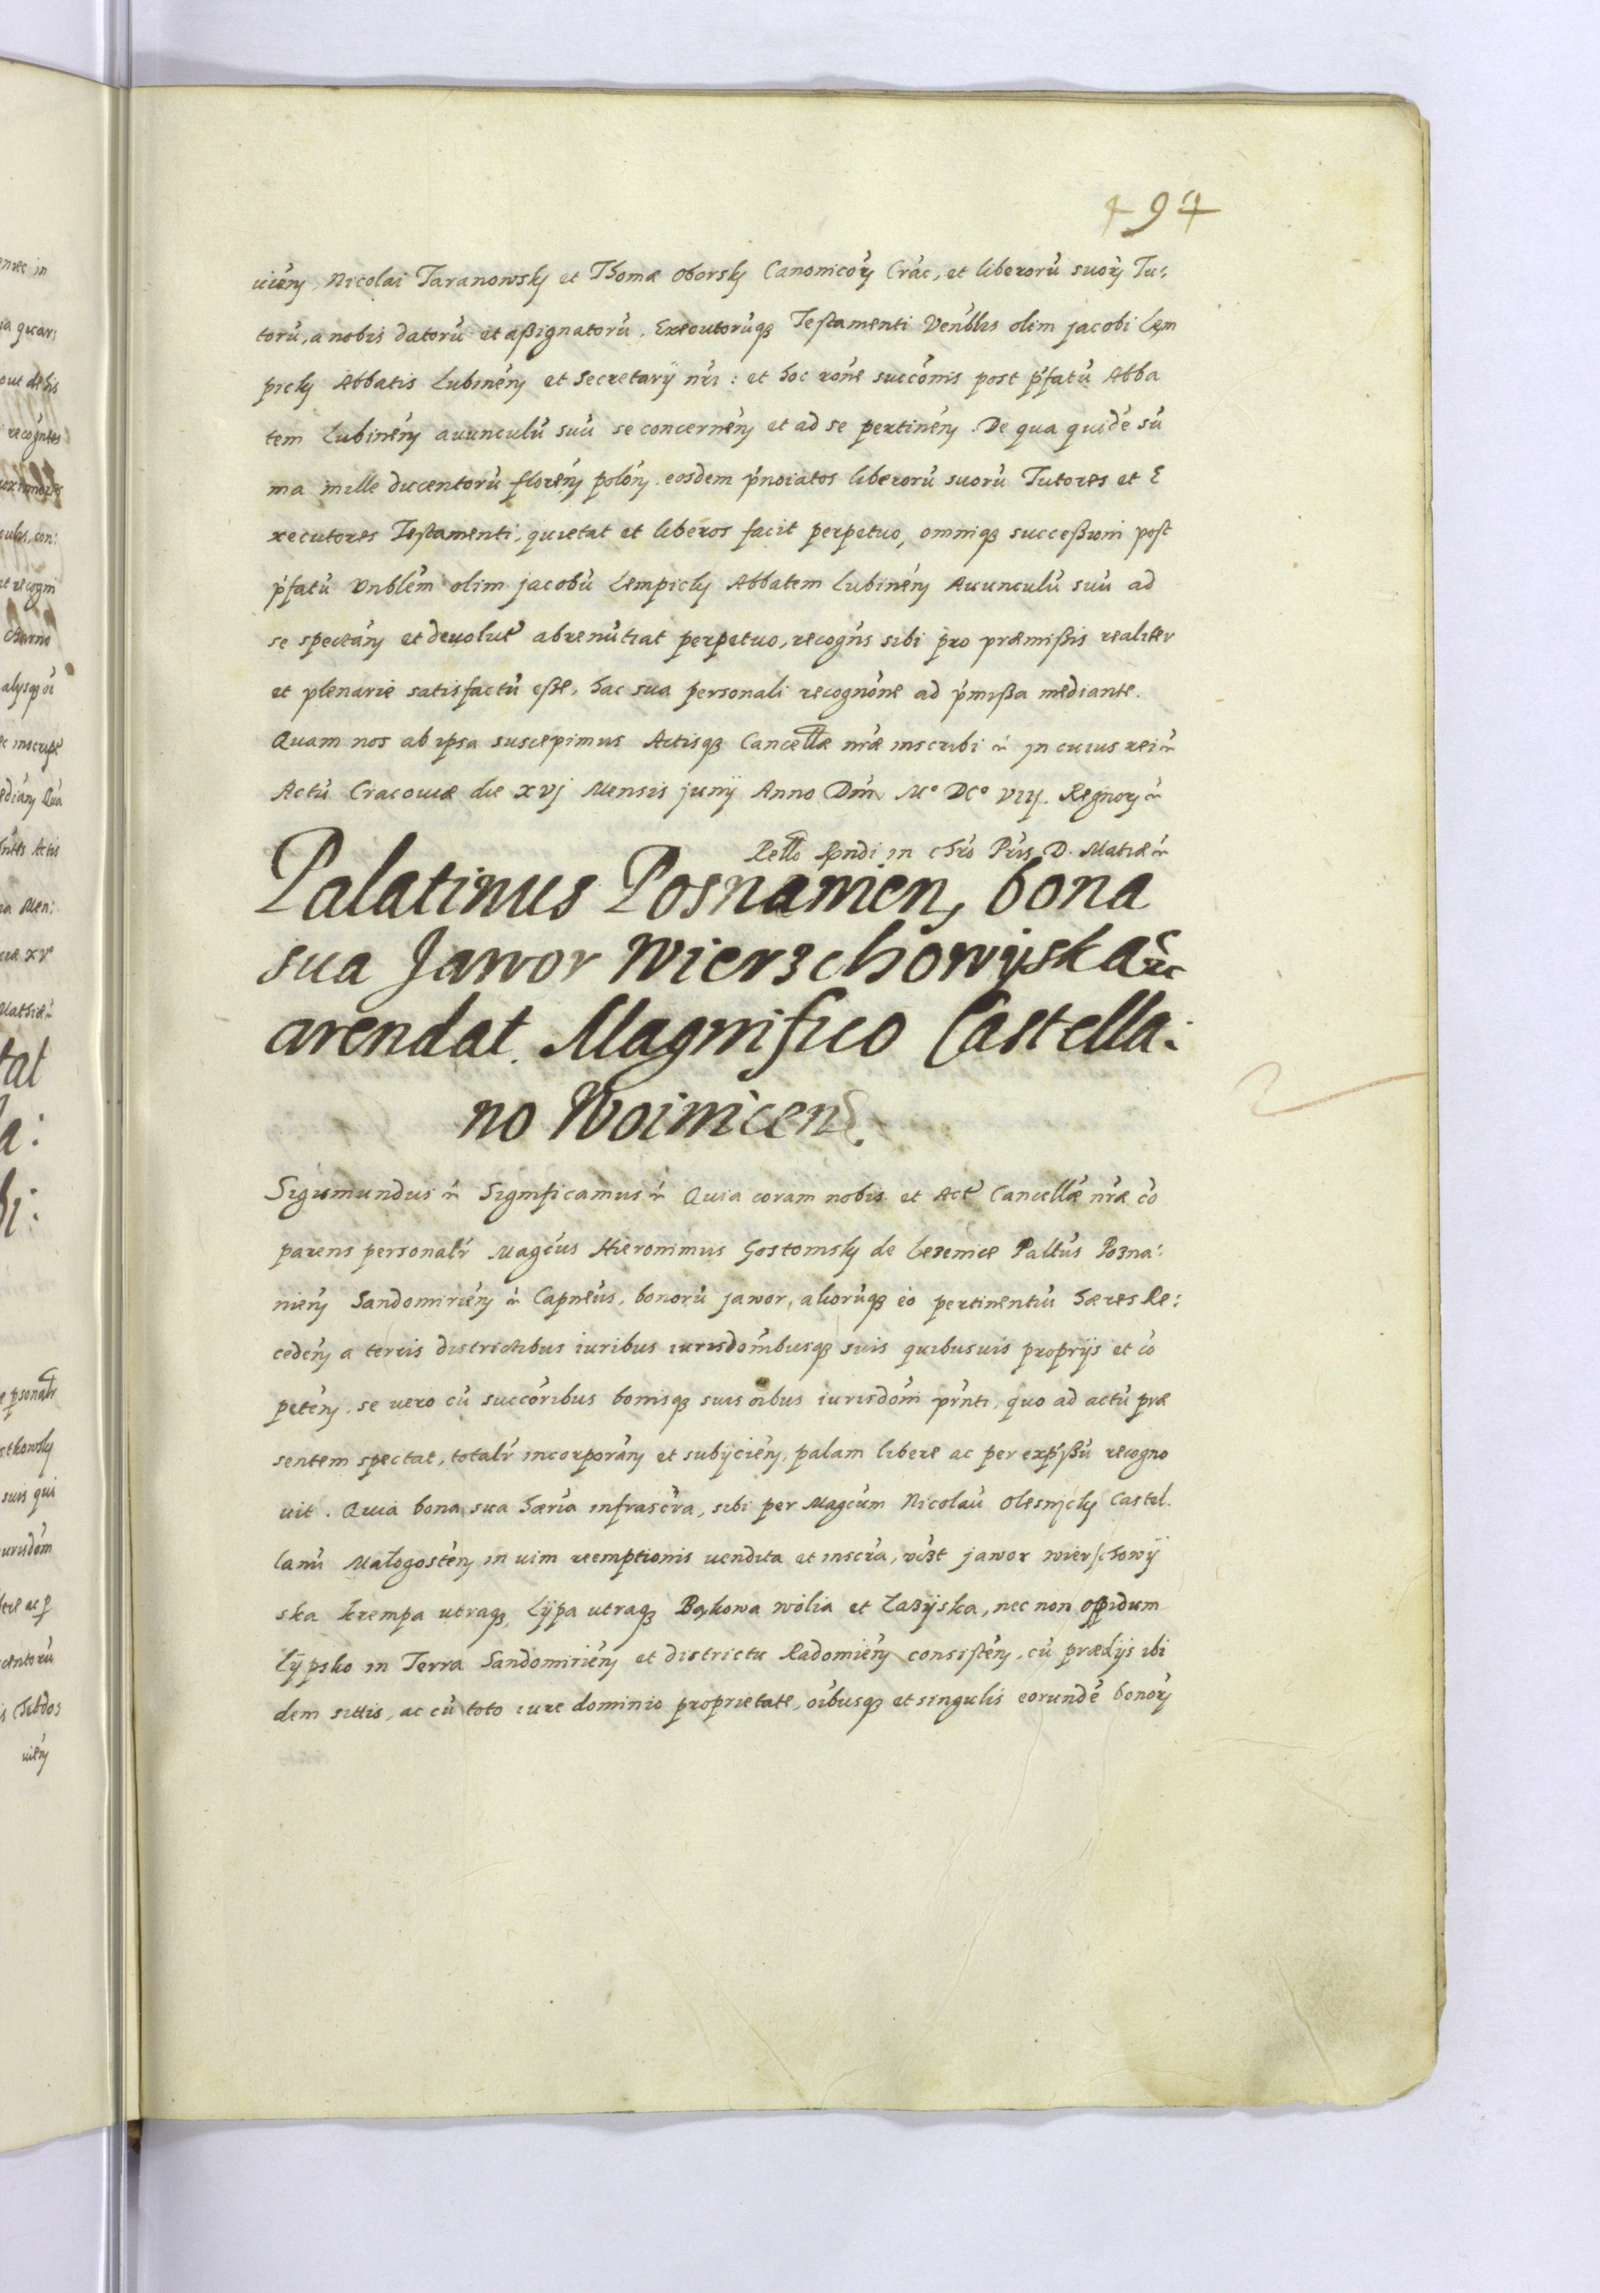 497
uień, Nicolai Taranowsky et Thomæ Oborsky Canonicorȝ Crać, et liberorū suorȝ Tu:
torū, a nobis datorū et aßignatorū, Executorūqȝ Testamenti Venblis olim jacobi Lem
picky Abbatis Lubinēń et Secretarij nri: et hoc rōne succōnis post p̄fatū Abba
tem Lubinēń auunculū suū se concernēń et ad se pertinēń. De qua quidē sū
ma mille ducentorū florēń polōń eosdem p̄noiatos liberorū suorū Tutores et E
xecutores Testamenti, quietat et liberos facit perpetuo, omniqȝ successioni post
p̄fatū Vnblēm olim jacobū Lempicky Abbatem Lubinēń Auunculū suū ad
se spectāń et devolut abrenūtiat perpetuo, recogns sibi pro præmißis realiter
et plenarie satisfactū eße, hac sua personali recognōne ad p̄mißa mediante.
Quam nos ab ipsa suscepimus Actisqȝ Cancellæ nræ inscribi &c In cuius rei &c
Actū Cracouiæ die xvj Mensis junij Anno Dni M° DC° VIIJ. Regnorȝ &c
Rello Rndi in chro Pris D. Matiæ &c
Palatinus Posnanien, bona
sua Jawor Wierzchowijska &c
arendat Magnifico Castella:
no Woinicen.
Sigismundus &c Significamus &c Quia coram nobis et Act Cancellæ nræ cō
parens personalr Magcus Hieronimus Gostomsky de Lezenice Pallus Pozna:
nień Sandomirień &c Capneus, bonorū jawor, aliorūqȝ eo pertinentiū hæres Re:
cedēń a terris districtibus iuribus iurisdōnibusqȝ suis quibusuis proprijs et cō
petēń, se uero cū succōribus bonisqȝ suis oībus iurisdōni prnti, quo ad actū præ
sentem spectat, totalr incorporāń et subijciēń, palam libere ac per exp̄ßū recogno
uit. Quia bona sua hæria infrascra, sibi per Magcum Nicolaū Olesnicky Castel.
lanū Małogostēń in uim reemptionis uendita et inscra, vidzt jawor wierschowij
ska krempa utraqȝ, Lÿpa utraqȝ Bąkowa wolia et Łazÿska, nec non oppidum
Lÿpsko in Terra Sandomirień et districtu Radomień consistēń, cū prædijs ibi
dem sittis, ac cū toto iure dominio proprietate, oībusqȝ et singulis eorundē bonorȝ